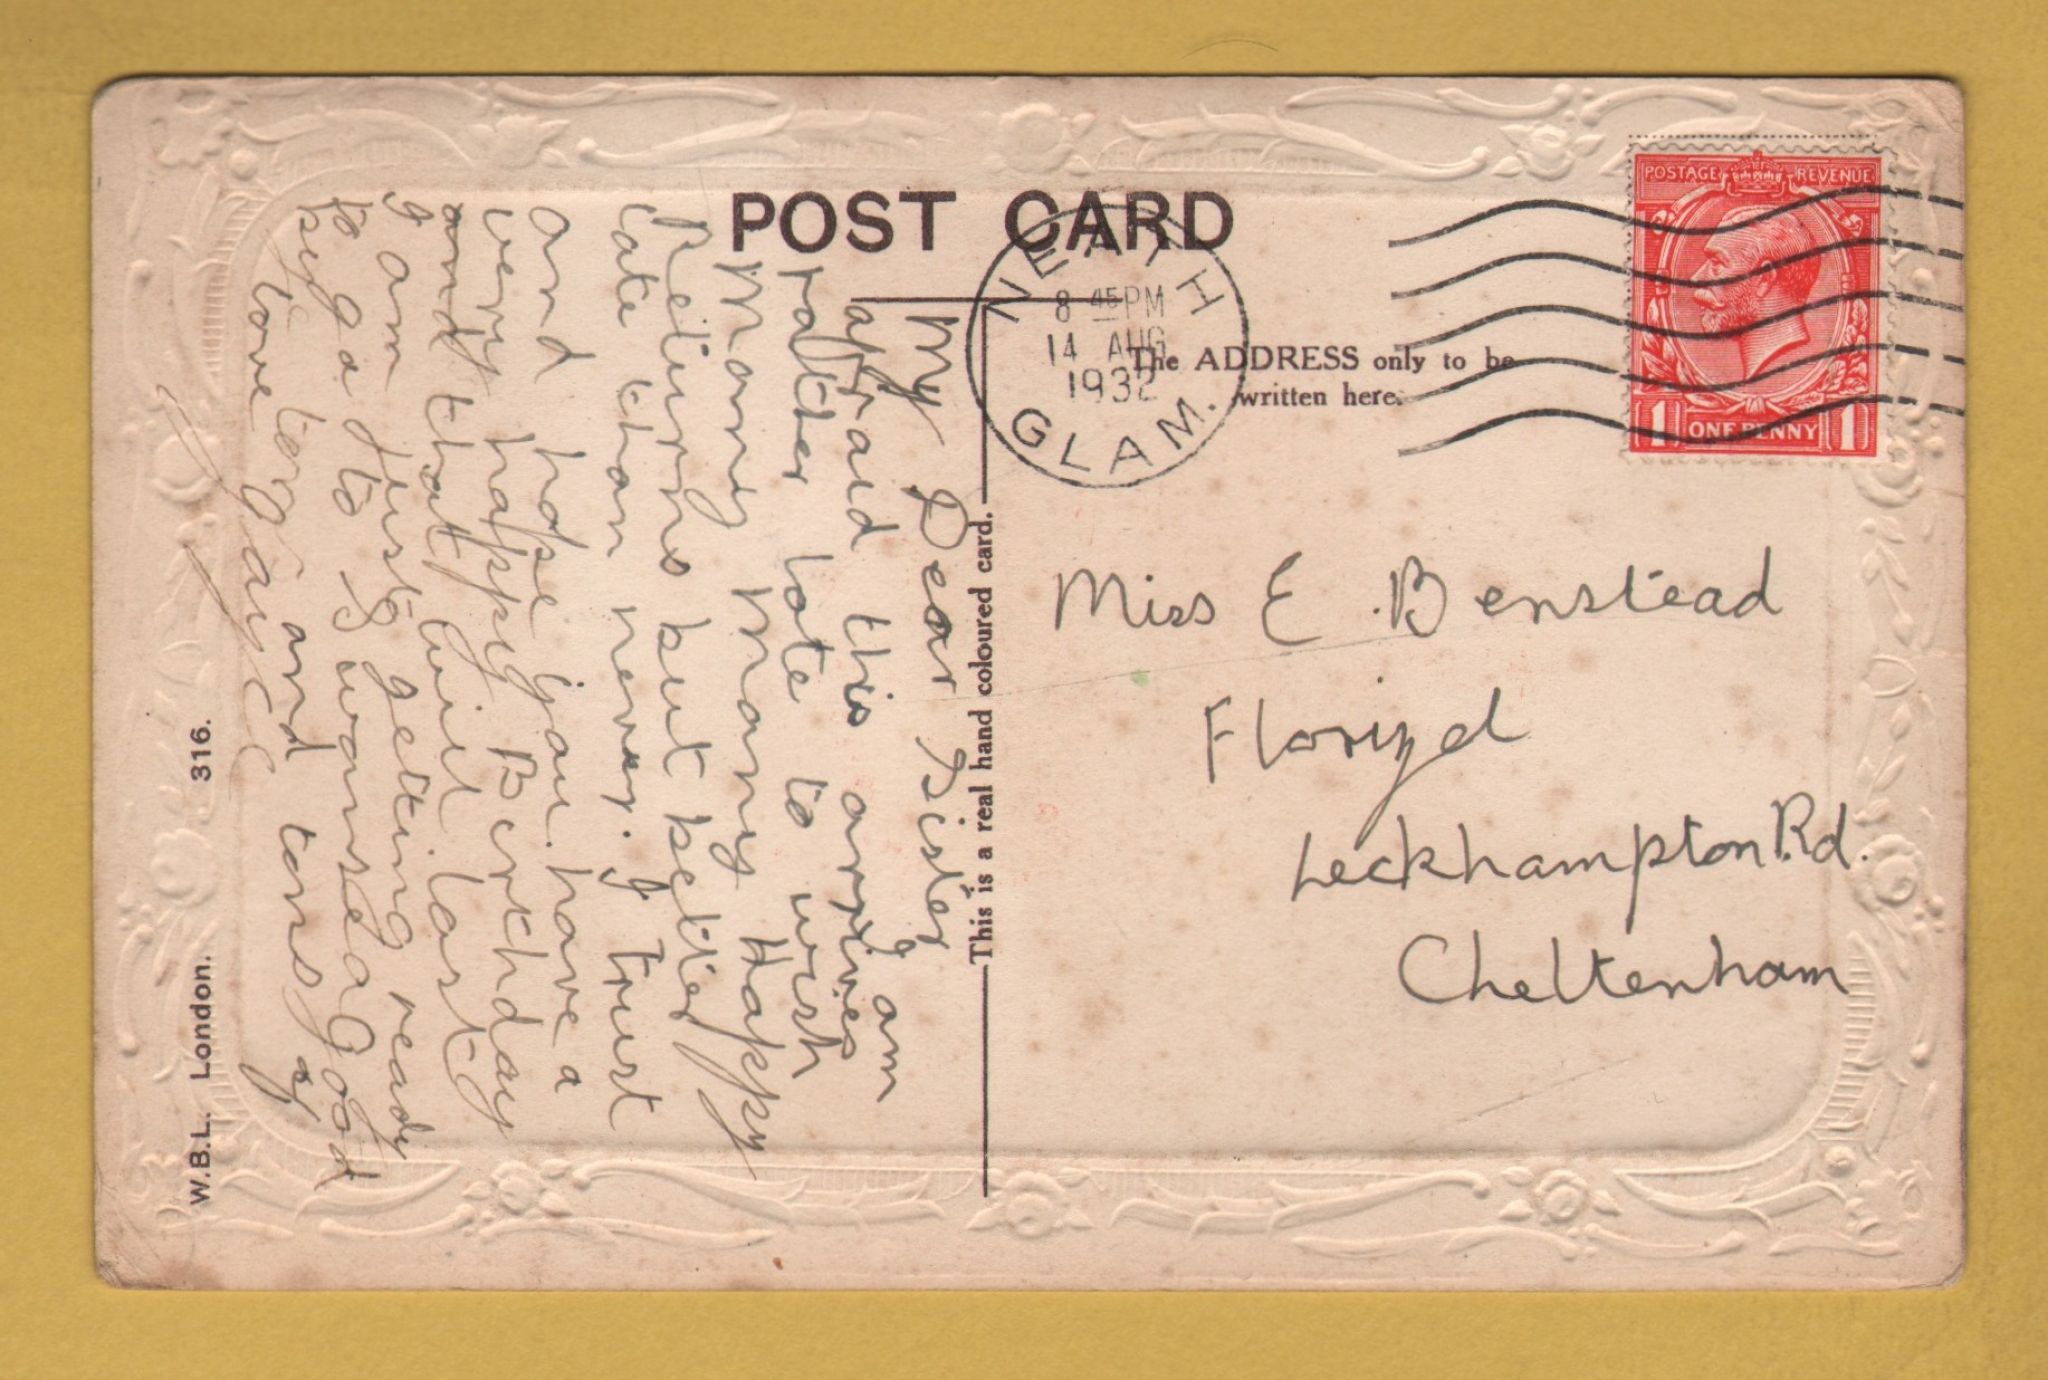 POST CARD
The ADDRESS only to be
written here.
NEATH
8 45 PM
14 AUG
1932
GLAM.
POSTAGE REVENUE
1 ONE PENNY 1
Miss E. Benstead
Florizel
Leckhampton Rd.
Cheltenham
This is a real hand coloured card.
My Dear Sister
I am
affraid this arrives
rather late to wish
Many Many Happy
Returns but better
late than never. I trust
and hope you have a
very happy Birthday
and that will last
I am just getting ready
to go to Swansea Good
bye love and tons of
love
W.B.L. London. 316.